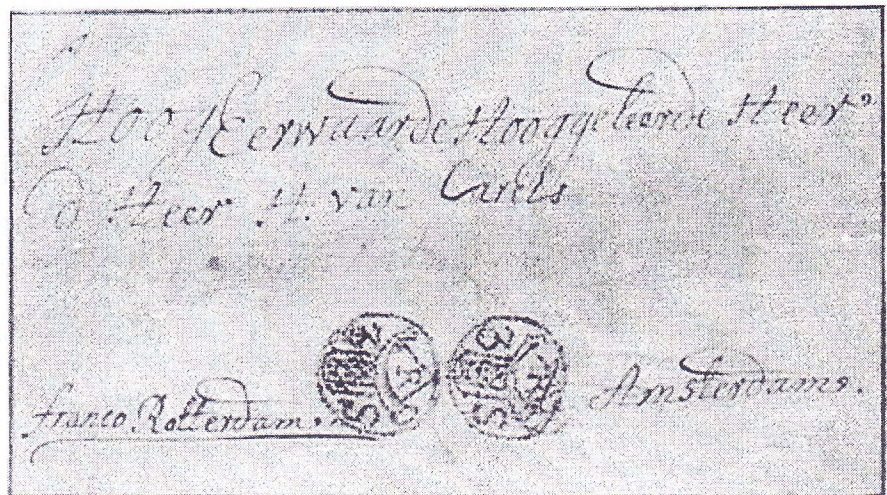 HoogEerwaarde Hooggeleerde Heer
d' Heer H. van Carels
franco Rotterdam.
Amsterdam.